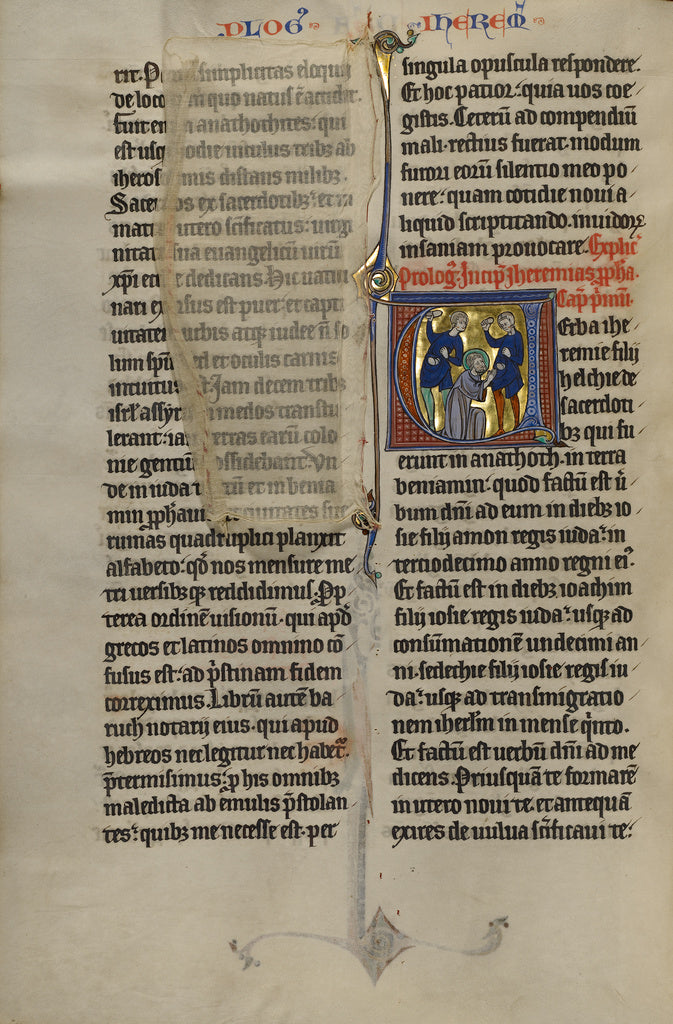 PLOGꝰ IHEREM̄
simplicitas eloquii
de loco in quo natus ē accidit.
anathochites: qui
est usq odie uiculus tribꝫ ab
iheros mis distans milibꝫ.
Sace os ex sacerdotibꝫ: et in
mat utero sc̄ificatus: uirgi
nitat sua euangelicū uirū
xp̄i e dedicans. Hic uatici
nari e sus est puer: et capti
uitatem urbis atqꝫ iudee n̄ so
lum sp̄u ed et oculis carnis
intuitus Iam decem tribꝫ
isrl̄ assyr in medos transtu
lerant: ia terras earū colo
nie gentiū ossidebant. Vn
de in iuda t tū et in benia
min pp̄hauit ciuitatis sue
ruinas quadruplici planxit
alfabeto: qd̄ nos mensure me
tri uersibꝫqꝫ reddidimus. P̄p
terea ordinē uisionū. qui apd̄
grecos et latinos omnino cō
fusus est: ad p̄stinam fidem
correximus. Librū autē ba
ruch notarij eius. qui apud
hebreos nec legitur nec habet᷑.
p̄termisimus: ꝓ his omnibꝫ
maledicta ab emulis p̄stolan
tes: quibꝫ me necesse est. per
singula opuscula respondere.
Et hoc patior: quia uos coe
gistis. Ceterū ad compendiū
mali. rectius fuerat. modum
furori eorū silentio meo po
nere: quam cotidie noui a
liquid scriptitando. inuidoꝝ
insaniam prouocare. Explic̄
Prologꝰ. Incip̄ Iheremias pp̄ha.
Cap̄ p̄mū.
Uerba ihe
remie filij
helchie de
sacerdoti
bꝫ qui fu
erunt in anathoth. in terra
beniamin: quod factū est ū
bum dn̄i ad eum in diebꝫ io
sie filij amon regis iuda: in
terciodecimo anno regni eiꝰ.
Et factū est in diebꝫ ioachim
filij iosie regis iuda: usqꝫ ad
consūmationē undecimi an
ni. sedechie filij iosie regis iu
da: usqꝫ ad transmigratio
nem iherl̄m in mense qͥnto.
Et factū est uerbū dn̄i ad me
dicens. Priusquā te formarē
in utero noui te. et antequā
exires de uulua sc̄ificaui te: